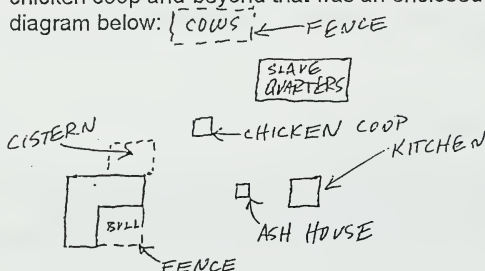 chicken coop and beyond that was an enclosed
diagram below:
COWS
FENCE
SLAVE
QUARTERS
CHICKEN COOP
CISTERN
KITCHEN
BULL
ASH HOUSE
FENCE